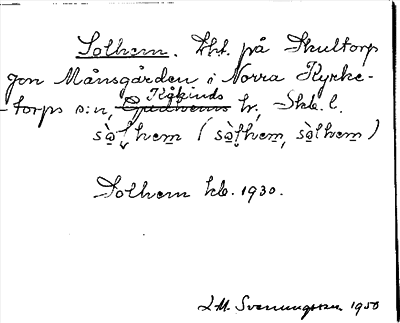 Solhem. Lht. på Skultorp
Jon Månsgården i Norra Kyrke-
Kåkinds
torps s:n, Gudhems hr, Skb. l.
sò̤lhem (sò̤lhem, sò̤lhem)
Solhem kb. 1930.
L. M. Svenungsson 1950